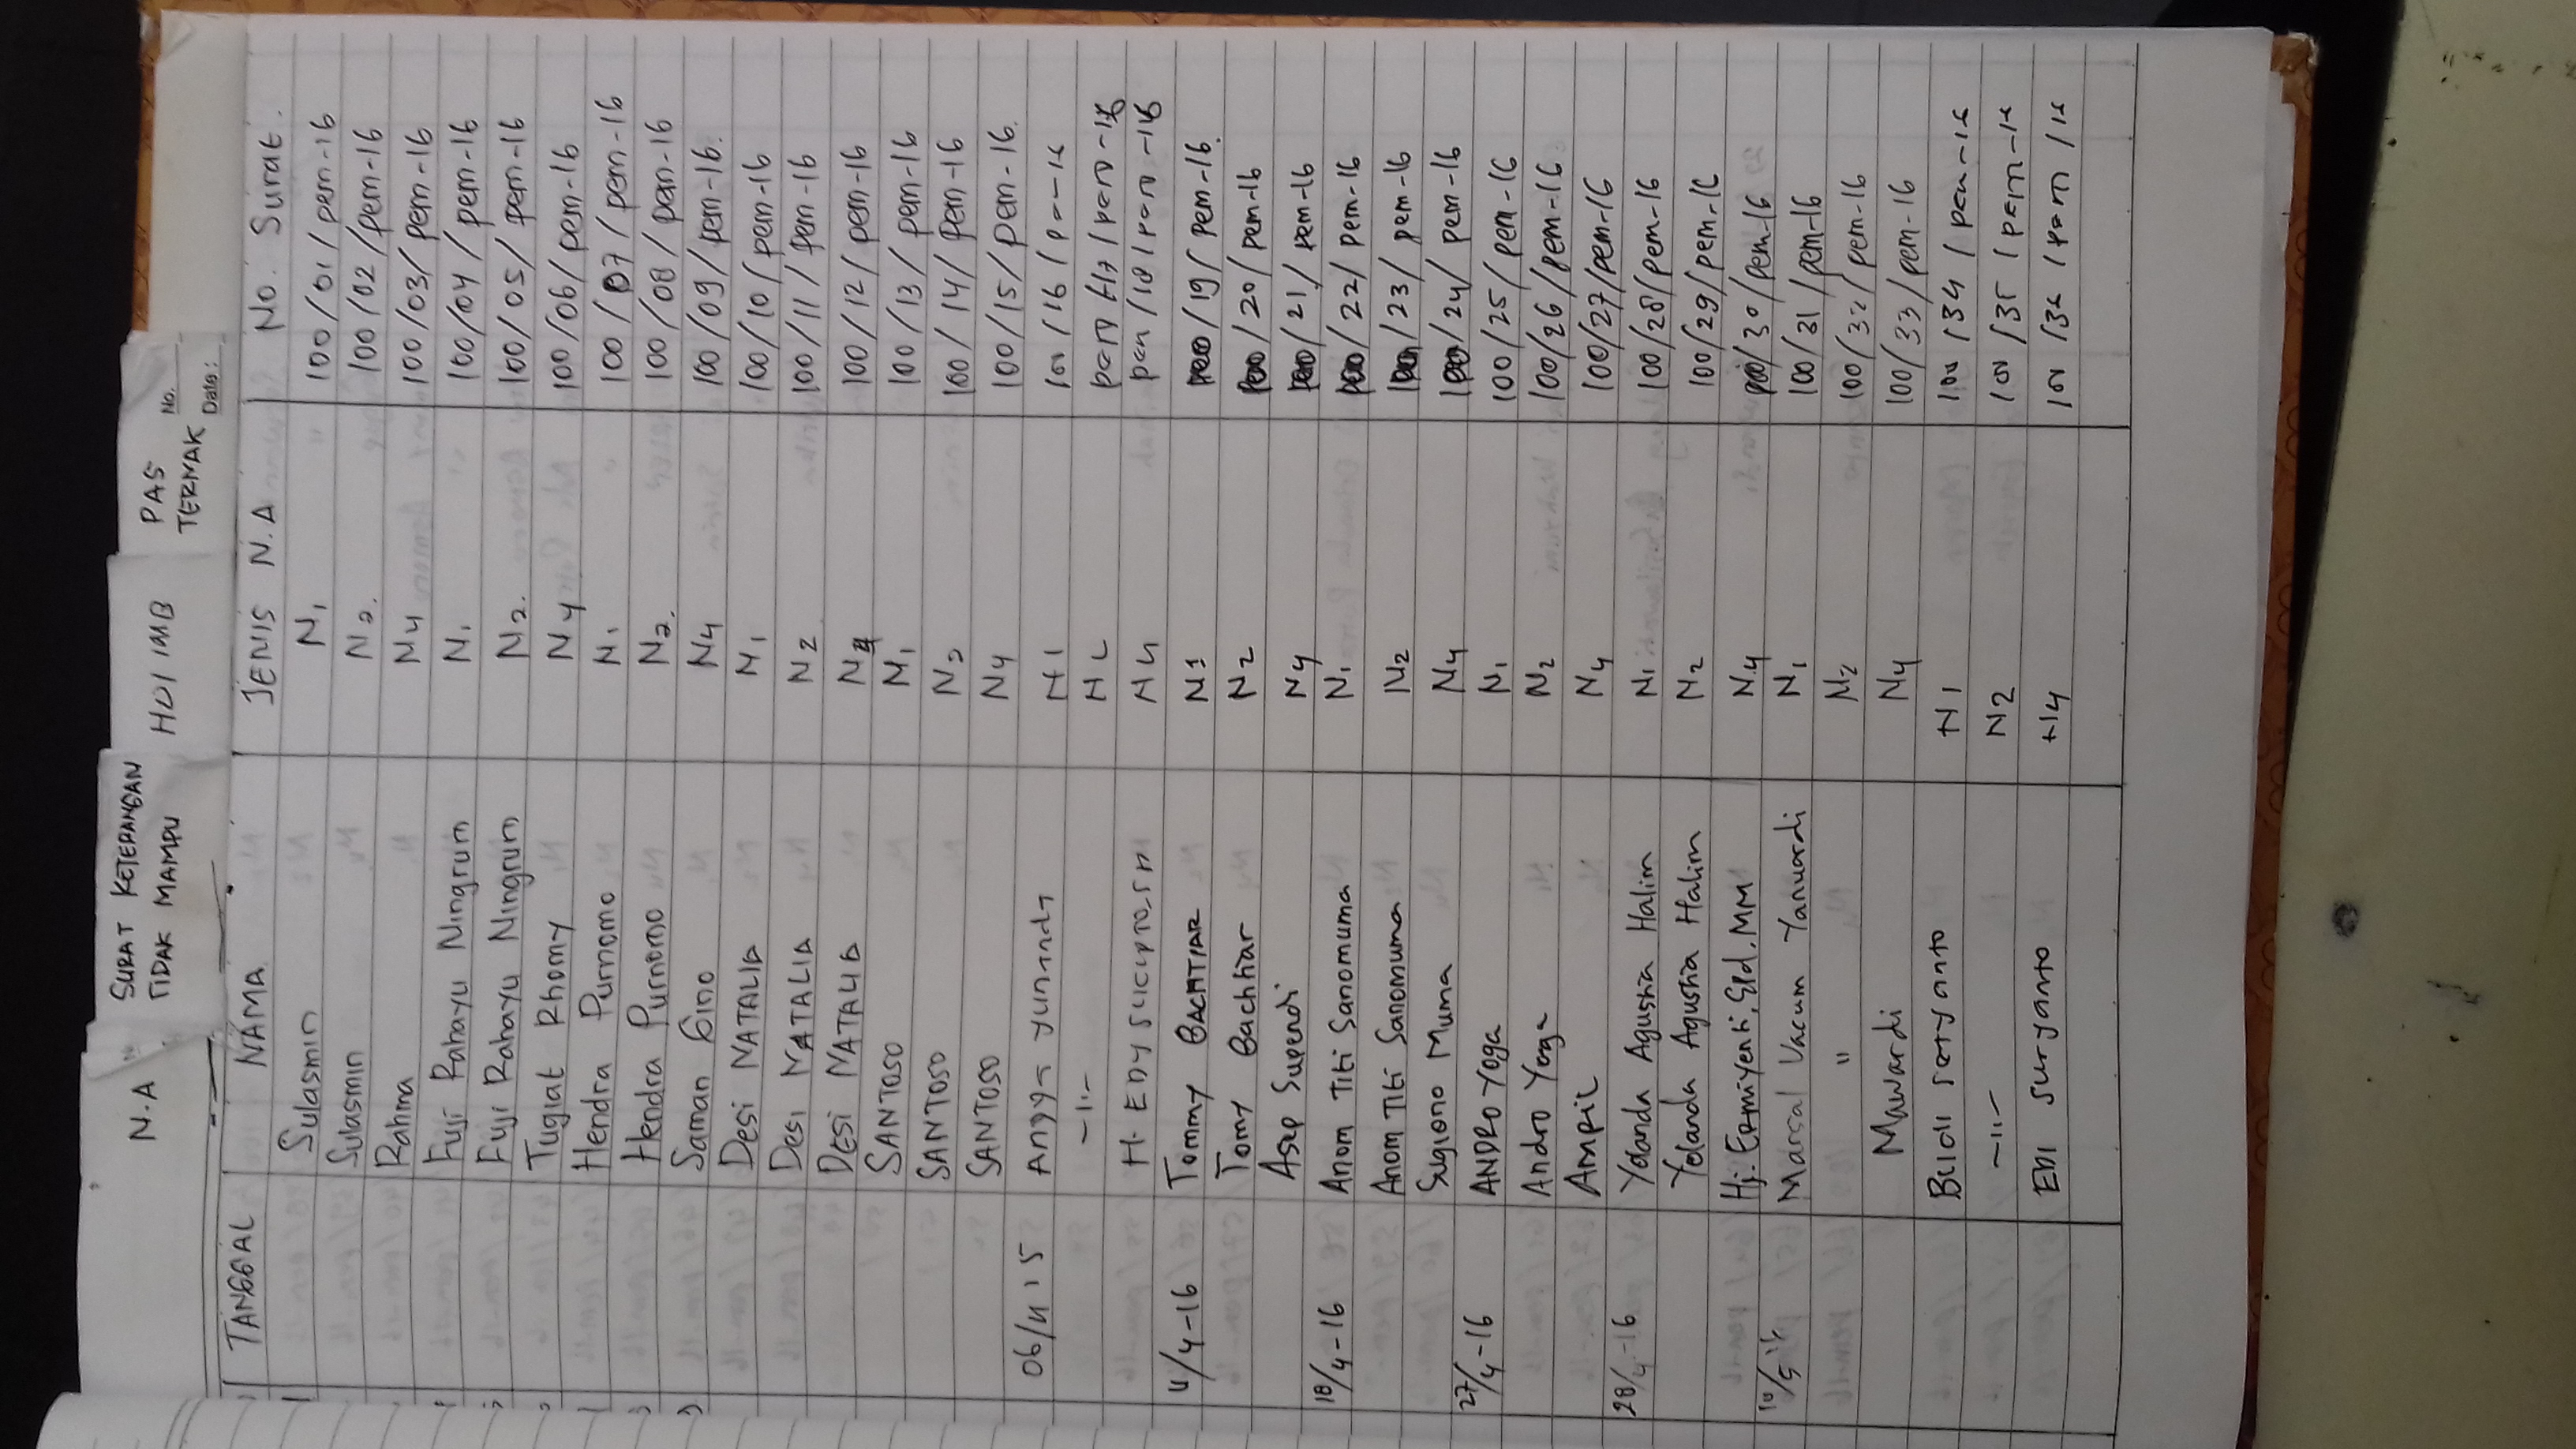 N.A
SURAT KETERANGAN
TIDAK MAMPU
HO/IMB
PAS
TERNAK
No.
Date:
TANGGAL NAMA JENIS N.A No. Surat.
Sulasmin N1 100/01/pem-16
Sulasmin N2 100/02/pem-16
Rahma N4 100/03/pem-16
Fuji Rahayu Ningrum N1 100/04/pem-16
Fuji Rahayu Ningrum N2. 100/05/pem-16
Tugiat Rhomy N4 100/06/pem-16
Hendra Purnomo N1 100/07/pem-16
Hendra Purnomo N2. 100/08/pem-16
Saman Gino N4 100/09/pem-16.
Desi NATALIA N1 100/10/pem-16
Desi NATALIA N2 100/11/pem-16
DESI NATALIA N4 100/12/pem-16
SANTOSO N1 100/13/pem-16
SANTOSO N2 100/14/pem-16
SANTOSO N4 100/15/pem-16.
06/4 15 Angga yunanda N1 100/16/pem-16
-11- N2 /17/pem-16
H. EDY SUCIPTO, SH N4 /18/pem-16
11/4-16 Tommy BACHTIAR N1 100/19/pem-16.
Tomy Bachtiar N2 100/20/pem-16
Asep Supendi N4 100/21/pem-16
18/4-16 Anom Titi Sanomuma N1 100/22/pem-16
Anom Titi Sanomuma N2 100/23/pem-16
Sugiono Muma N4 100/24/pem-16
27/4-16 ANDRO YOGA N1 100/25/pem-16
Andro Yoga N2 100/26/pem-16
AMRIL N4 100/27/pem-16
28/4-16 Yolanda Agustia Halim N1 100/28/pem-16
Yolanda Agustia Halim N2 100/29/pem-16
Hj. Ermiyenti, SPd, MM N4 100/30/pem-16
10/5 16 Marsal Vacum Yanuardi N1 100/31/pem-16
" N2 100/32/pem-16
Mawardi N4 100/33/pem-16
Budi N1 100/34/pem-16
-11- N2 100/35/pem-16
EDI suryanto N4 100/36/pem/16